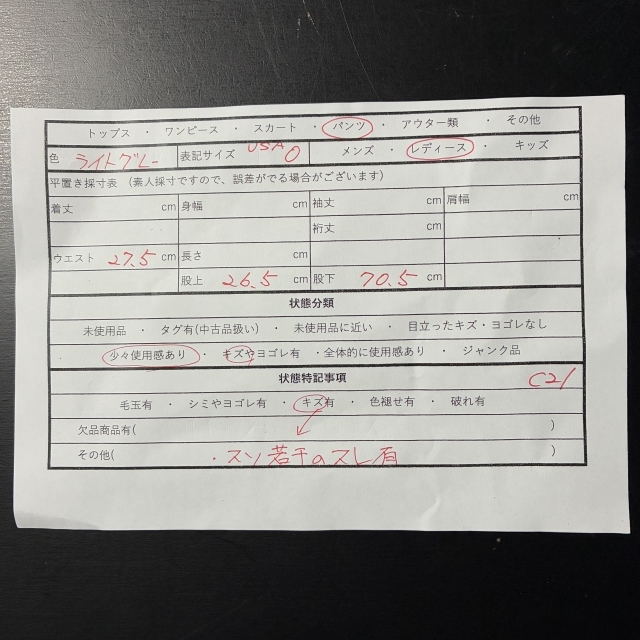 トップス ・ ワンピース ・ スカート ・ パンツ ・ アウター類 ・ その他
色 ライトグレー 表記サイズ USA 0 メンズ ・ レディース ・ キッズ
平置き採寸表 (素人採寸ですので、誤差がでる場合がございます)
着丈 cm 身幅 cm 袖丈 cm 肩幅 cm
裄丈 cm
ウエスト 27.5 cm 長さ cm
股上 26.5 cm 股下 70.5 cm
状態分類
未使用品 ・ タグ有(中古品扱い) ・ 未使用品に近い ・ 目立ったキズ・ヨゴレなし
少々使用感あり ・ キズやヨゴレ有 ・全体的に使用感あり ・ ジャンク品
状態特記事項 C21
毛玉有 ・ シミやヨゴレ有 ・ キズ有 ・ 色褪せ有 ・ 破れ有
欠品商品有( )
その他( ・スソ若干のスレ有 )